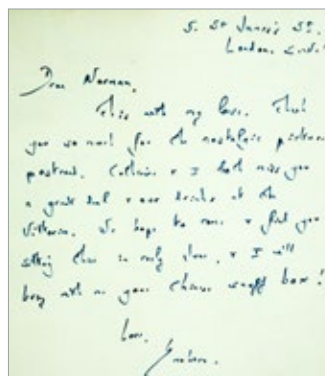 5. St James's St.
London. S.W.1
Dear Norman,
This with my love. Thank
you so much for the nostalgic picture
postcard. Catherine & I both miss you
a great deal & our drinks at the
. We hope to come & find you
sitting there in early , & I will
bring with me your Chinese snuff box!
Love,
Graham